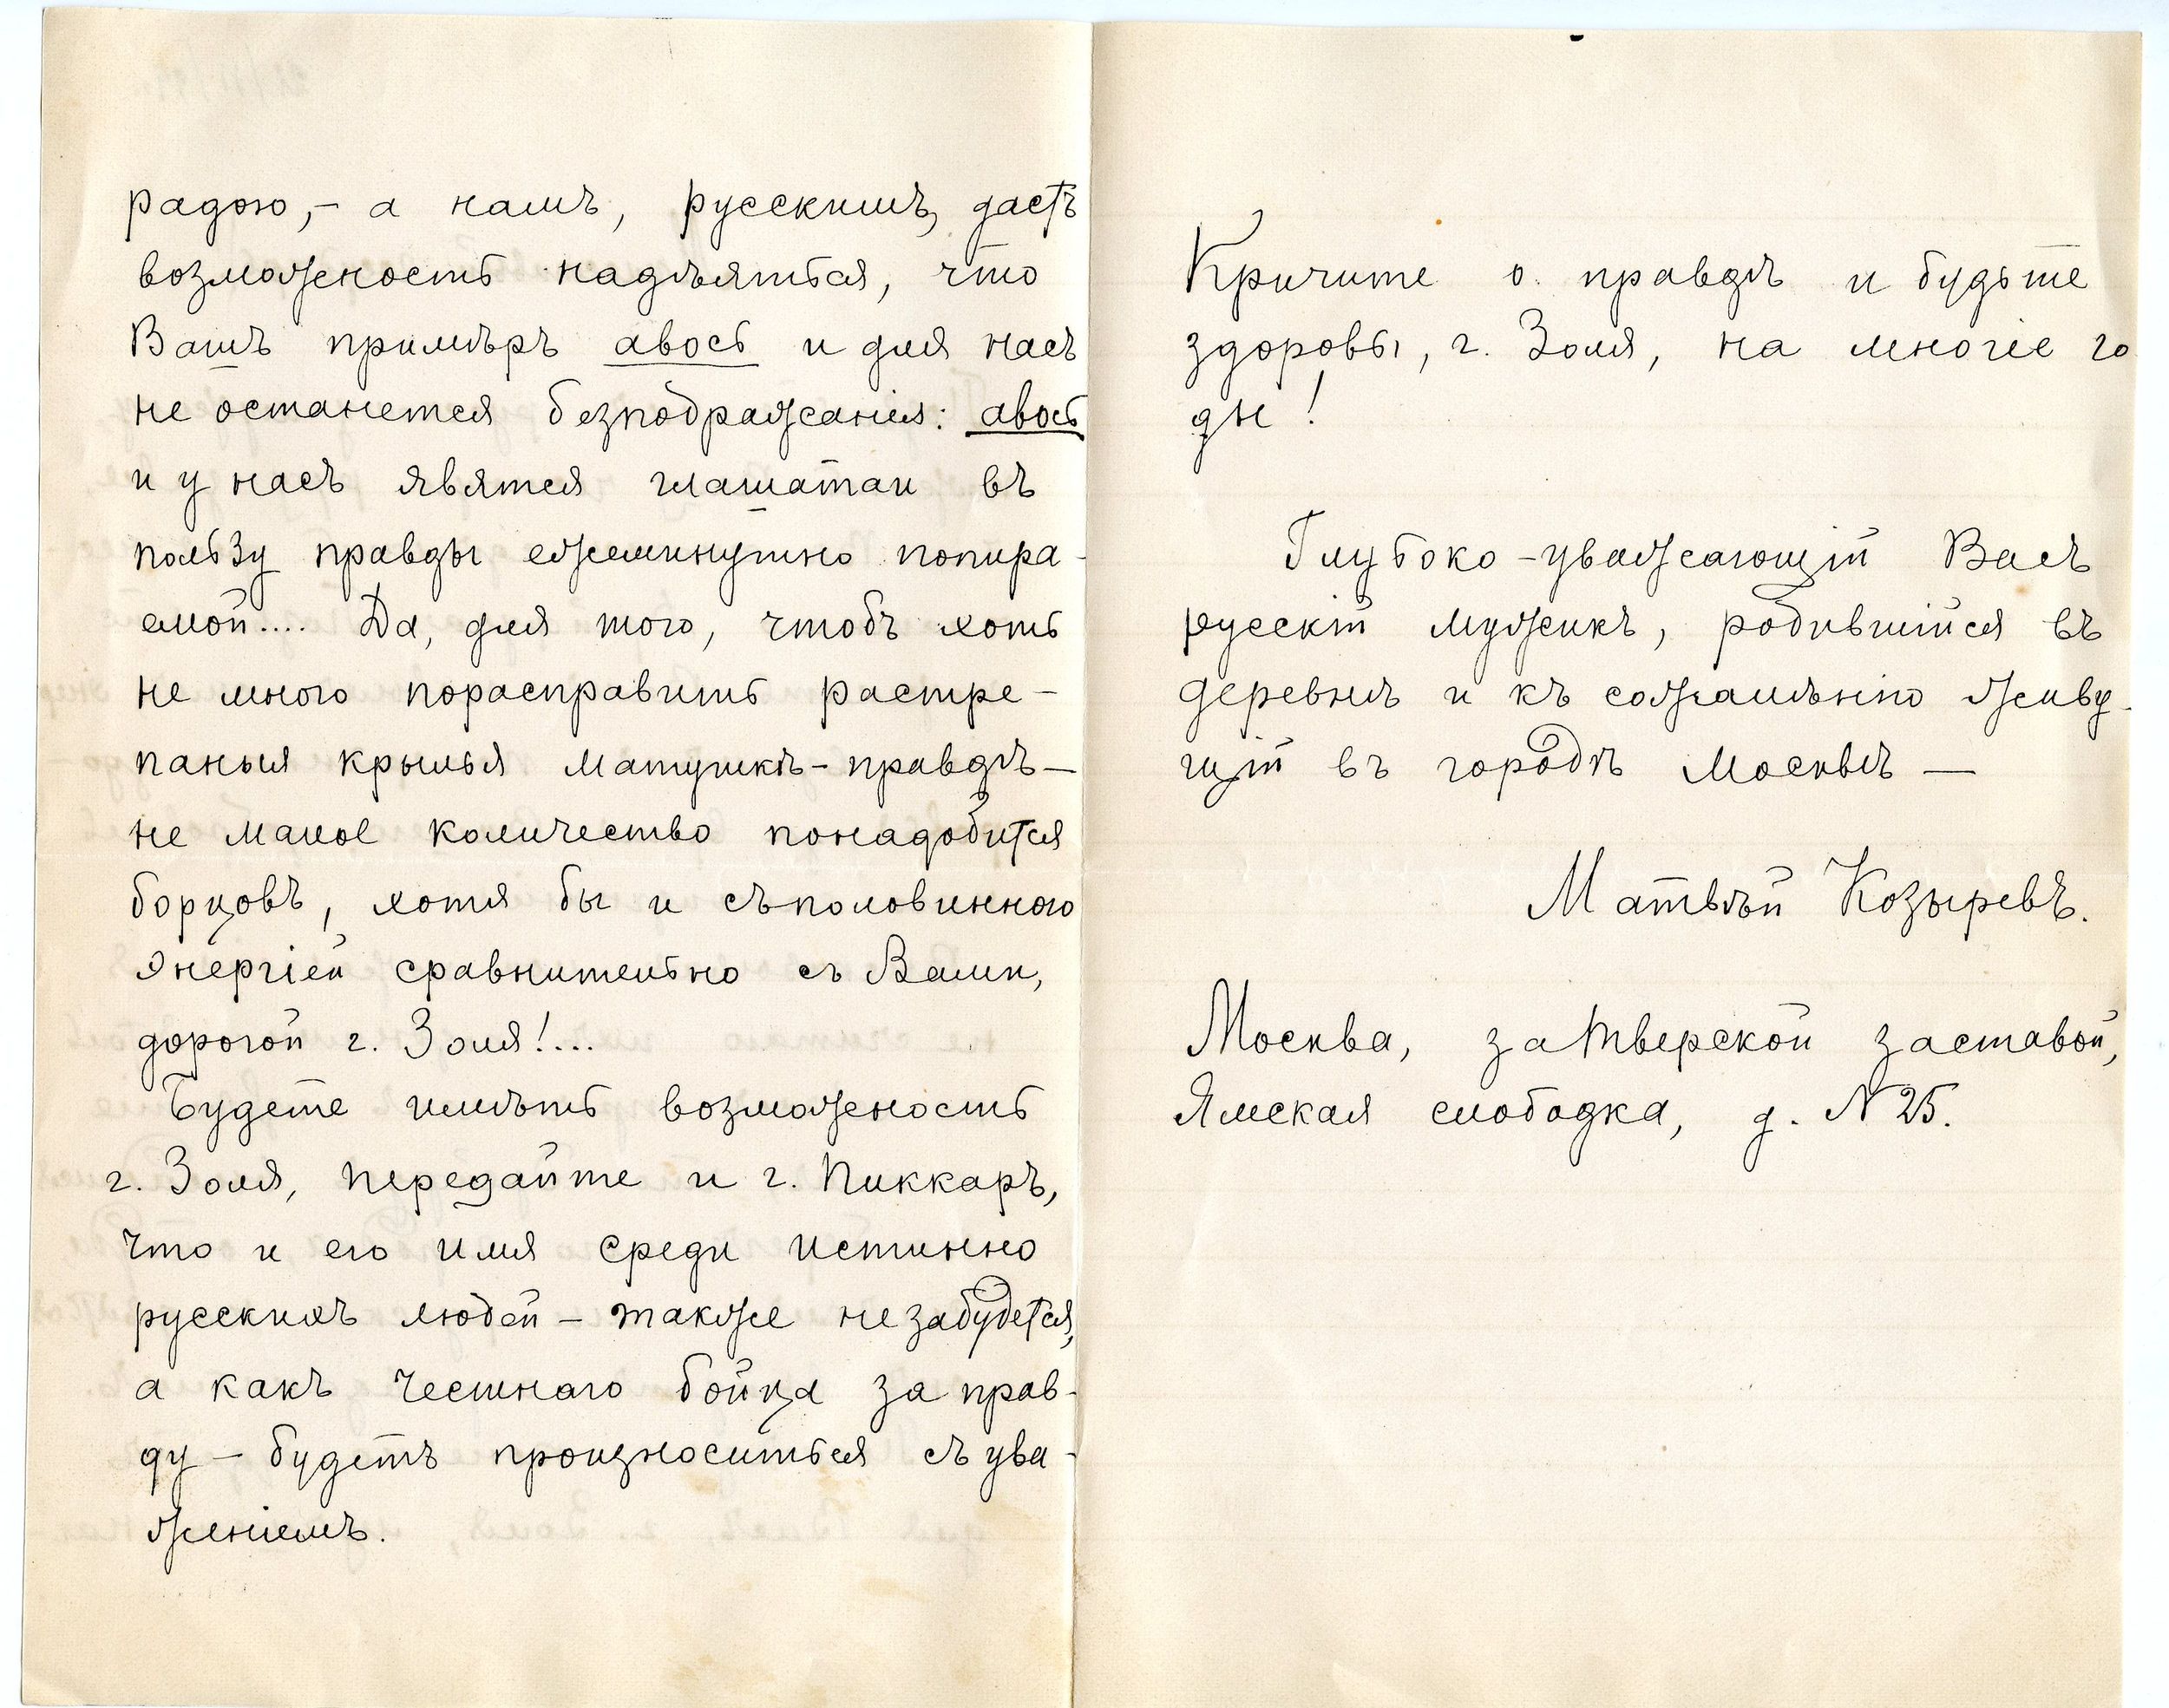 радою,- а намъ, русскимъ, дастъ
возможность надѣяться, что
Вашъ примѣръ авось и для насъ
не останется безподражанія: авось
и у насъ явятся глашатаи въ
пользу правды ежеминутно попира-
емой.... Да, для того, чтобъ хоть
не много порасправить растре-
паныя крылья матушкѣ-правдѣ—
не малое количество понадобится
борцовъ, хотя бы и съполовинною
энергіей сравнительно съ Вами,
дорогой г. Золя!...
Будете имѣть возможность
г. Золя, передайте и г. Пиккаръ,
что и его имя среди истинно
русскихъ людей – также незабудется,
а какъ честнаго бойца за прав-
ду – будетъ произноситься съ ува-
женіемъ.
Кричите о правдѣ и будьте
здоровы, г. Золя, на многіе го
ды!
Глубоко-уважающій Васъ
русскій мужикъ, родившійся въ
деревнѣ и къ сожалѣнію живу-
щій въ городѣ Москвѣ —
Матвѣй Козыревъ.
Москва, за Тверской заставой,
Ямская слободка, д. N 25.